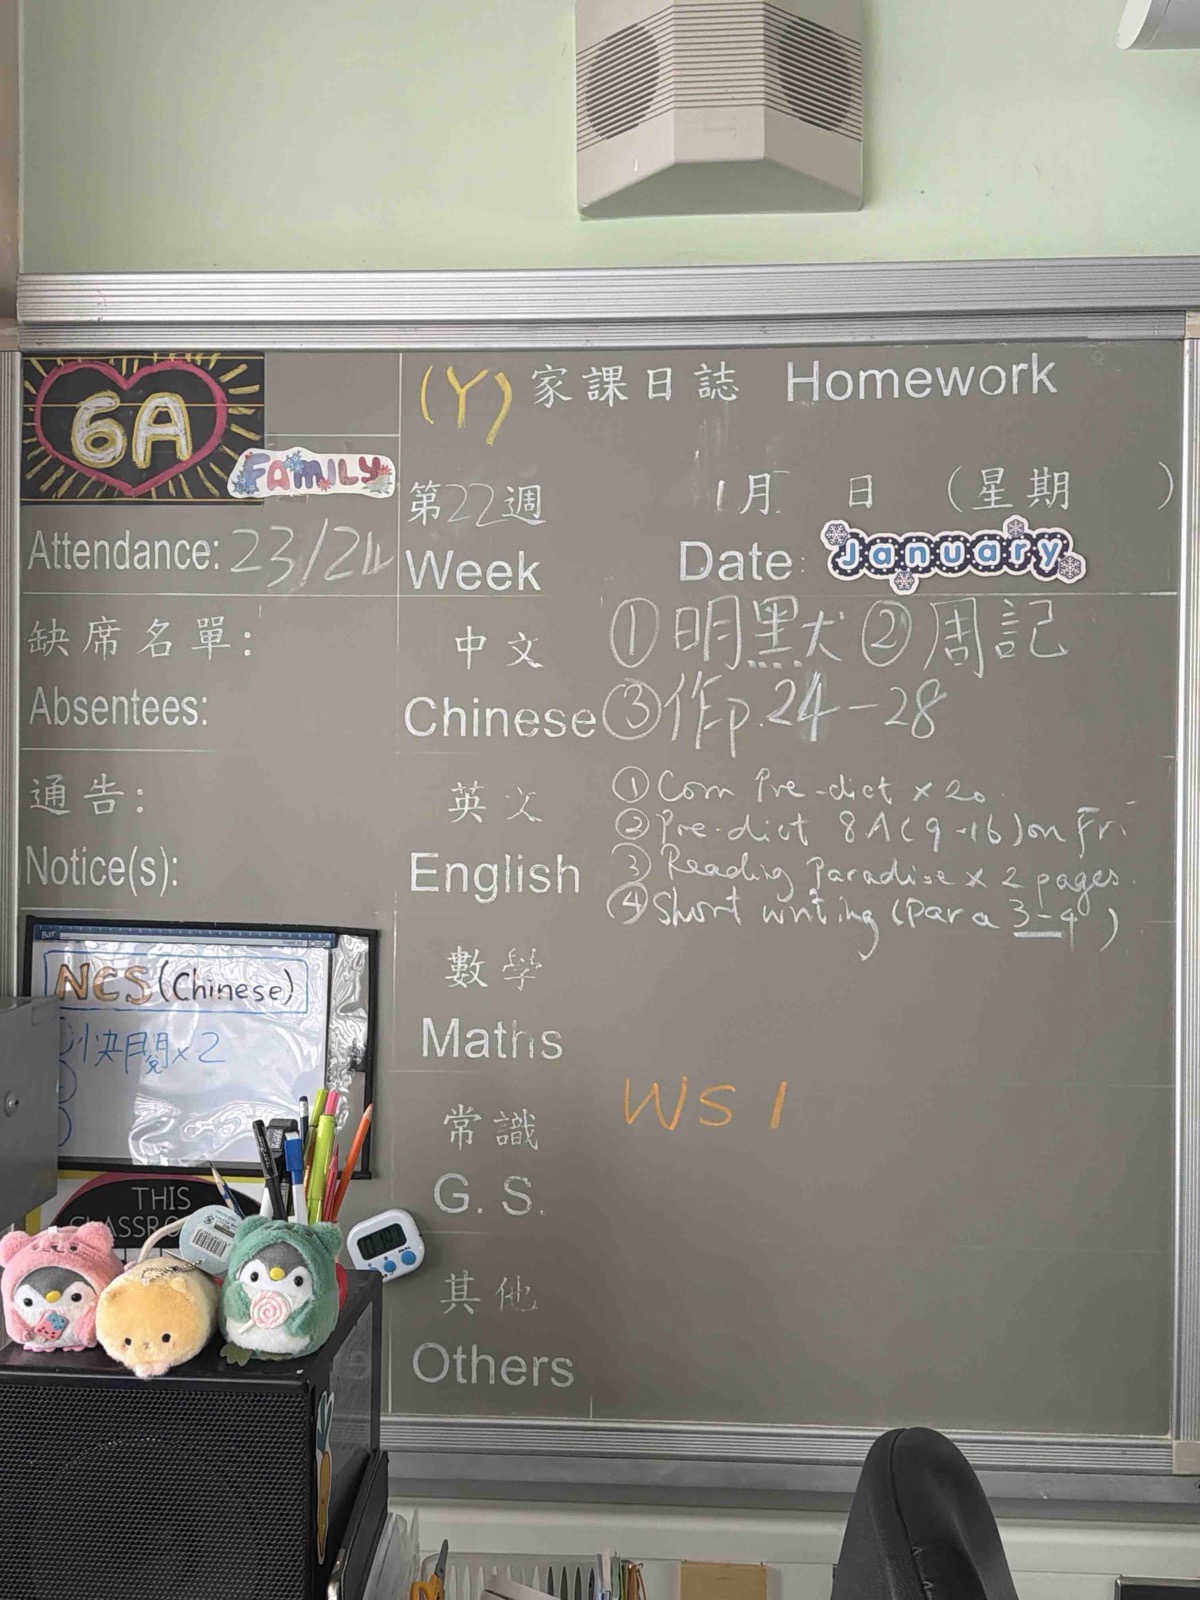 6A
FAMILY
Attendance: 23/24
缺席名單:
Absentees:
通告:
Notice(s):
NCS (Chinese)
快閱x2
THIS
CLASSRO
(Y) 家課日誌 Homework
第22週 1月 日 (星期 )
Week Date: January
中文 ①明默犬 ②周記
Chinese ③作p.24-28
英文 ① Corr Pre-dict x 20
② Pre-dict 8A (9-16) on Fri
English ③ Reading Paradise x 2 pages.
④ Short writing (Para 3-4)
數學
Maths
常識 WS 1
G. S.
其他
Others